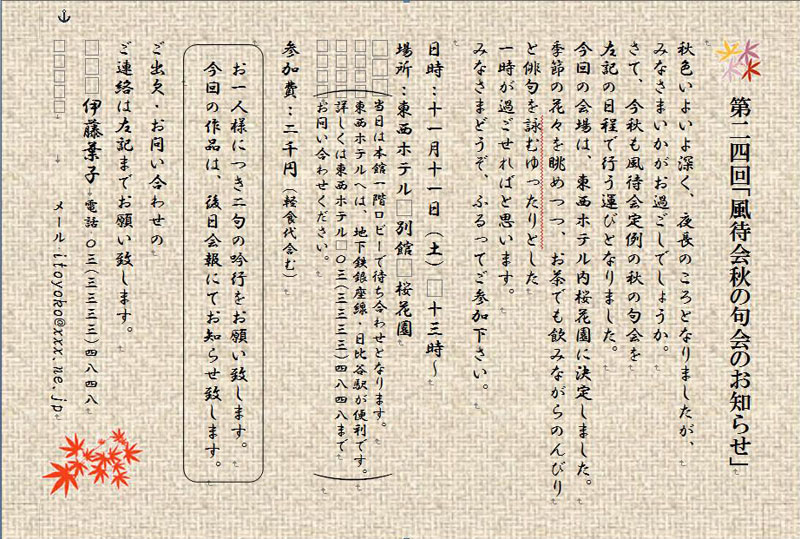 第二四回「風待会秋の句会のお知らせ」
秋色いよいよ深く、夜長のころとなりましたが、
みなさまいかがお過ごしでしょうか。
さて、今秋も風待会定例の秋の句会を
左記の日程で行う運びとなりました。
今回の会場は、東西ホテル内桜花園に決定しました。
季節の花々を眺めつつ、お茶でも飲みながらのんびり
と俳句を詠むゆったりとした
一時が過ごせればと思います。
みなさまどうぞ、ふるってご参加下さい。
日時:十一月十一日(土)□十三時〜
場所:東西ホテル□別館□桜花園
当日は本館一階ロビーで待ち合わせとなります。
東西ホテルへは、地下鉄銀座線・日比谷駅が便利です。
詳しくは東西ホテル□〇三(三三三三)四八四八まで
お問い合わせください。
参加費:二千円(軽食代含む)
お一人様につき二句の吟行をお願い致します。
今回の作品は、後日会報にてお知らせ致します。
ご出欠・お問い合わせの
ご連絡は左記までお願い致します。
伊藤葉子 電話 〇三(三三三三)四八四八
メール itoyoko@xxx.ne.jp